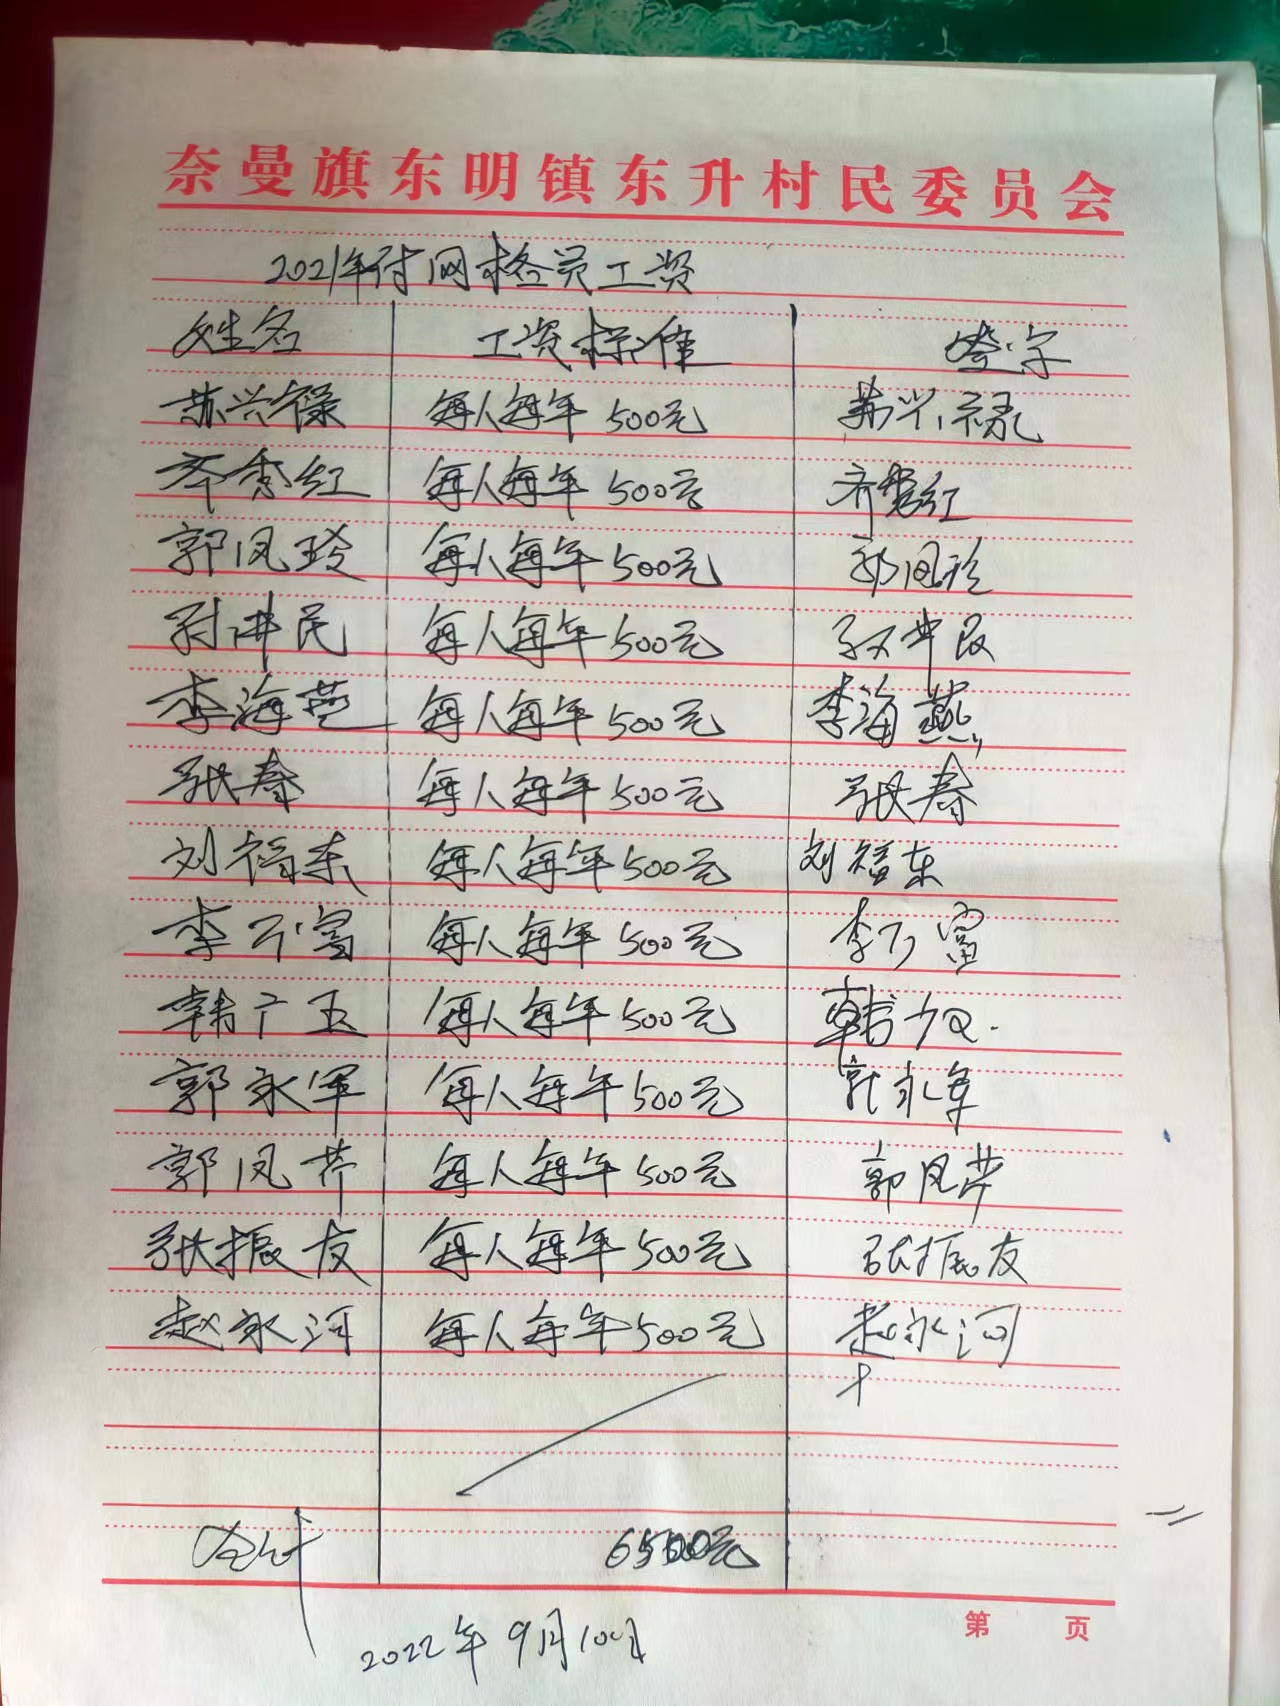 奈曼旗东明镇东升村民委员会
2021年付网格员工资
姓名 工资标准 签字
苏兴禄 每人每年500元 苏兴禄
齐秀红 每人每年500元 齐秀红
郭凤玲 每人每年500元 郭凤玲
孙井民 每人每年500元 孙井民
李海燕 每人每年500元 李海燕
张春 每人每年500元 张春
刘福东 每人每年500元 刘福东
李万富 每人每年500元 李万富
韩广玉 每人每年500元 韩广玉
郭永军 每人每年500元 郭永军
郭凤芹 每人每年500元 郭凤芹
张振友 每人每年500元 张振友
赵永河 每人每年500元 赵永河
合计 6500元
第 页
2022年9月10日